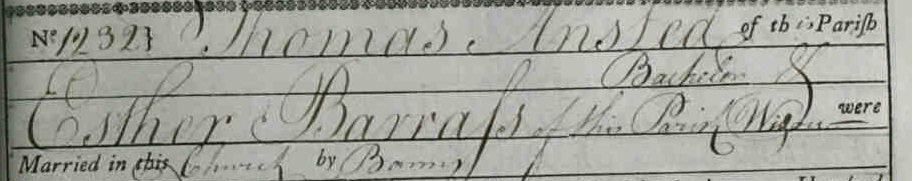 No. 1232} Thomas Ansted of this Pariſh
Bachelor &
Esther Barraſs of this Parish Widow were
Married in this Church by Banns